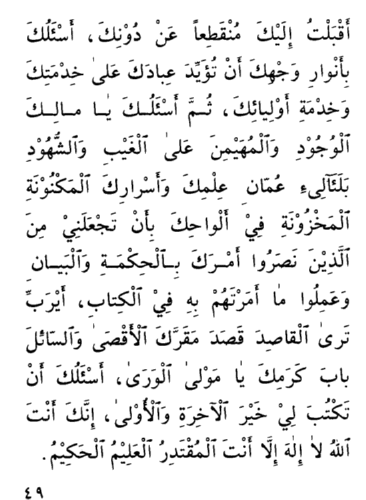 أَقْبَلْتُ إِلَيْكَ مُنْقَطِعاً عَنْ دُوْنِكَ، أَسْئَلُكَ
بِأَنْوارِ وَجْهِكَ أَنْ تُؤَيِّدَ عِبادَكَ عَلىٰ خِدْمَتِكَ
وَخِدْمَةِ أَوْلِيائِكَ، ثُمَّ أَسْئَلُكَ يٰا مالِكَ
الْوُجُوْدِ وَالْمُهَيْمِنَ عَلىٰ الْغَيْبِ وَالشُّهُوْدِ
بِلَئَآلِیءِ عُمّانِ عِلْمِكَ وَأَسْرارِكَ الْمَكْنُوْنَةِ
الْمَخْزُوْنَةِ فِيْ أَلْواحِكَ بِأَنْ تَجْعَلَنِيْ مِنَ
الَّذِيْنَ نَصَرُوا أَمْرَكَ بِالْحِكْمَةِ وَالْبَيانِ
وَعَمِلُوا مٰا أَمَرْتَهُمْ بِهِ فِيْ الْكِتابِ، أَيْرَبِّ
تَرىٰ الْقاصِدَ قَصَدَ مَقَرَّكَ الْأَقْصىٰ وَالسّائِلَ
بابَ كَرَمِكَ يٰا مَوْلىٰ الْوَرىٰ، أَسْئَلُكَ أَنْ
تَكْتُبَ لِيْ خَيْرَ الْآخِرَةِ وَالْأُوْلىٰ، إِنَّكَ أَنْتَ
اللهُ لاٰ إِلٰهَ إِلَّا أَنْتَ الْمُقْتَدِرُ الْعَلِيْمُ الْحَكِيْمُ.
٤٩